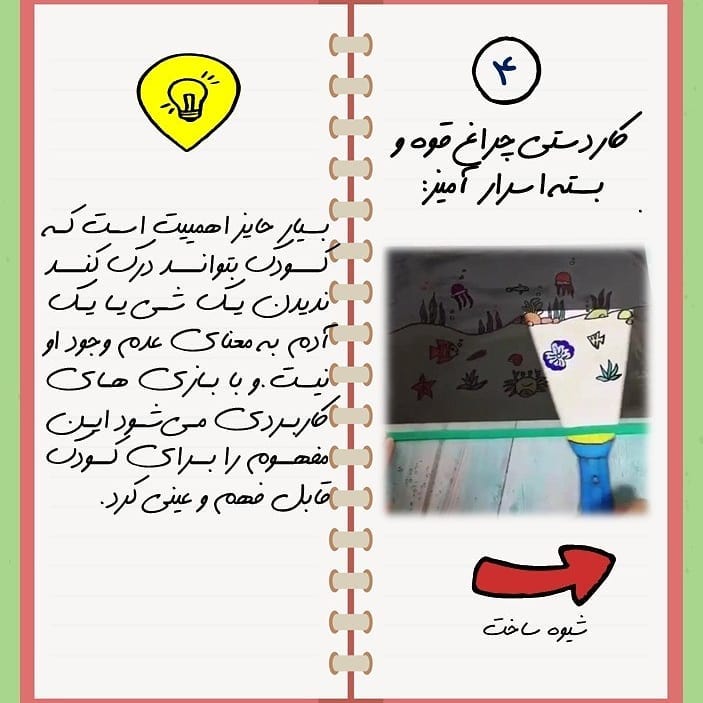 ۴
کاردستی چراغ قوه و
بسته اسرار آمیز:
شیوه ساخت
بسیار حایز اهمییت است که
کودک بتواند درک کند
ندیدن یک شی یا یک
آدم به معنای عدم وجود او
نیست. و با بازی های
کاربردی می‌شود این
مفهوم را برای کودک
قابل فهم و عینی کرد.